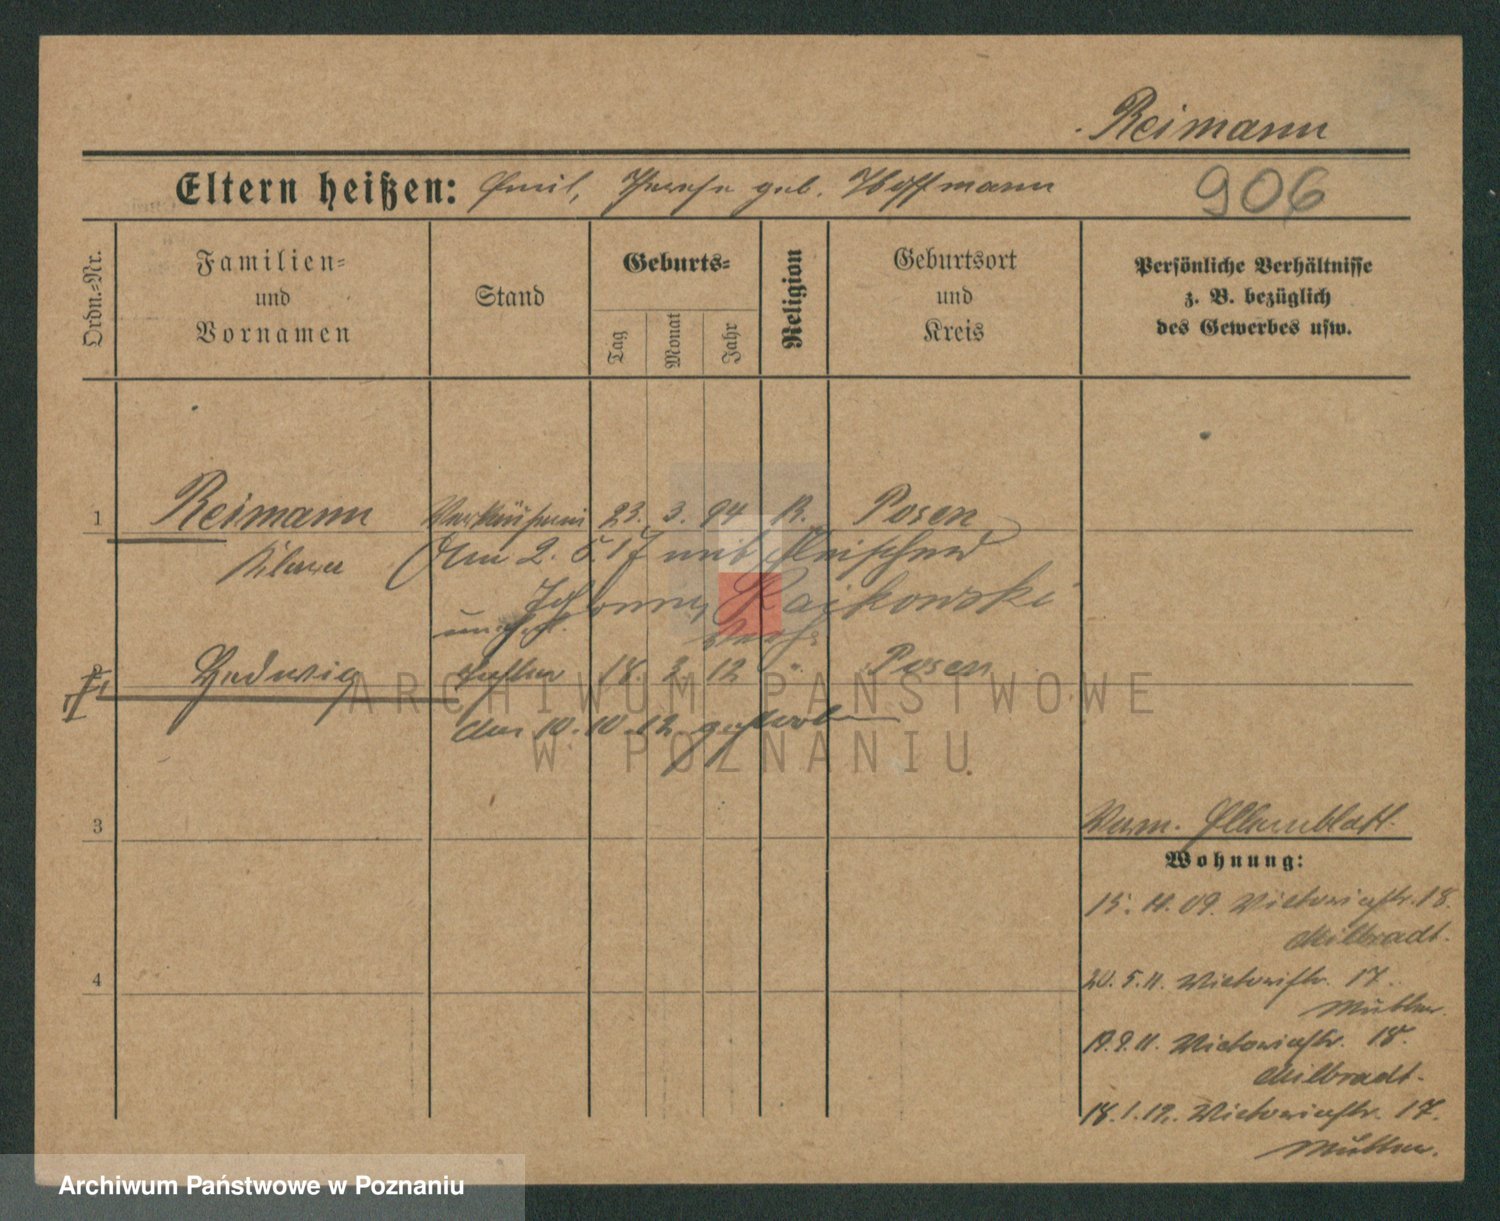 Reimann
Eltern heißen: Emil, geb. Hoffmann
906
Ordn.-Nr.
Familien-
und
Vornamen
Stand
Geburts-
Tag
Monat
Jahr
Religion
Geburtsort
und
Kreis
Persönliche Verhältnisse
z. B. bezüglich
des Gewerbes usw.
1 Reimann Verkäuferin 23. 3. 94 Posen
Klara Am 2. 5. 17 mit Fleischer
Rajkowski
unehel.
Hedwig Tochter 18. 3. 12 " Posen
Am 10. 10. 12 gestorben
ARCHIWUM PAŃSTWOWE
W POZNANIU
3
Elternblatt.
Wohnung:
15. 11. 09. Victoriastr. 18.
Milbradt.
4
20. 5. 11. Victoriastr. 17.
Mutter.
19. 9. 11. Victoriastr. 18.
Milbradt.
18. 1. 12. Victoriastr. 17.
Mutter.
Archiwum Państwowe w Poznaniu